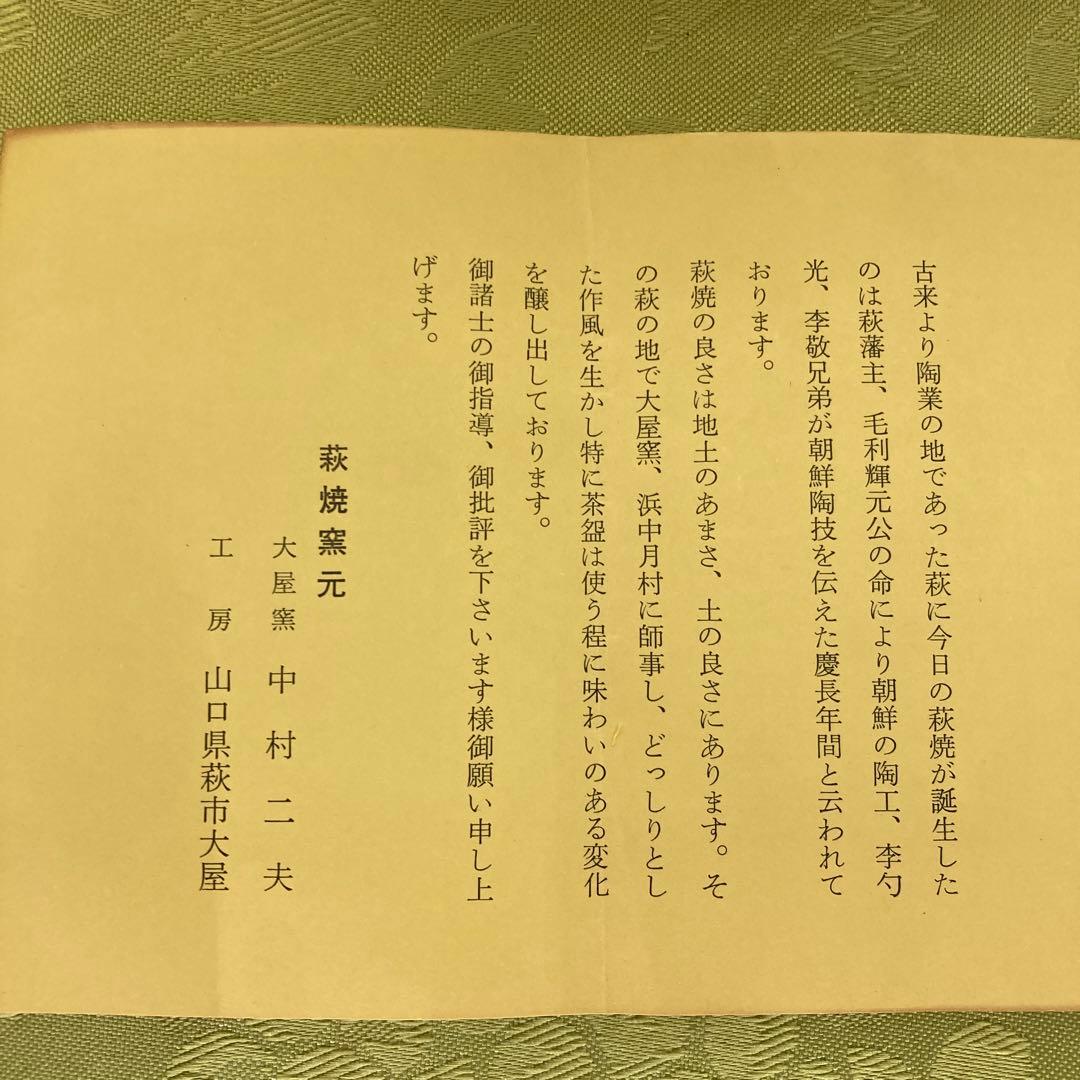 古来より陶業の地であった萩に今日の萩焼が誕生した
のは萩藩主、毛利輝元公の命により朝鮮の陶工、李勺
光、李敬兄弟が朝鮮陶技を伝えた慶長年間と云われて
おります。
萩焼の良さは地土のあまさ、土の良さにあります。そ
の萩の地で大屋窯、浜中月村に師事し、どっしりとし
た作風を生かし特に茶盌は使う程に味わいのある変化
を醸し出しております。
御諸士の御指導、御批評を下さいます様御願い申し上
げます。
萩焼窯元
大屋窯 中村二夫
工房 山口県萩市大屋